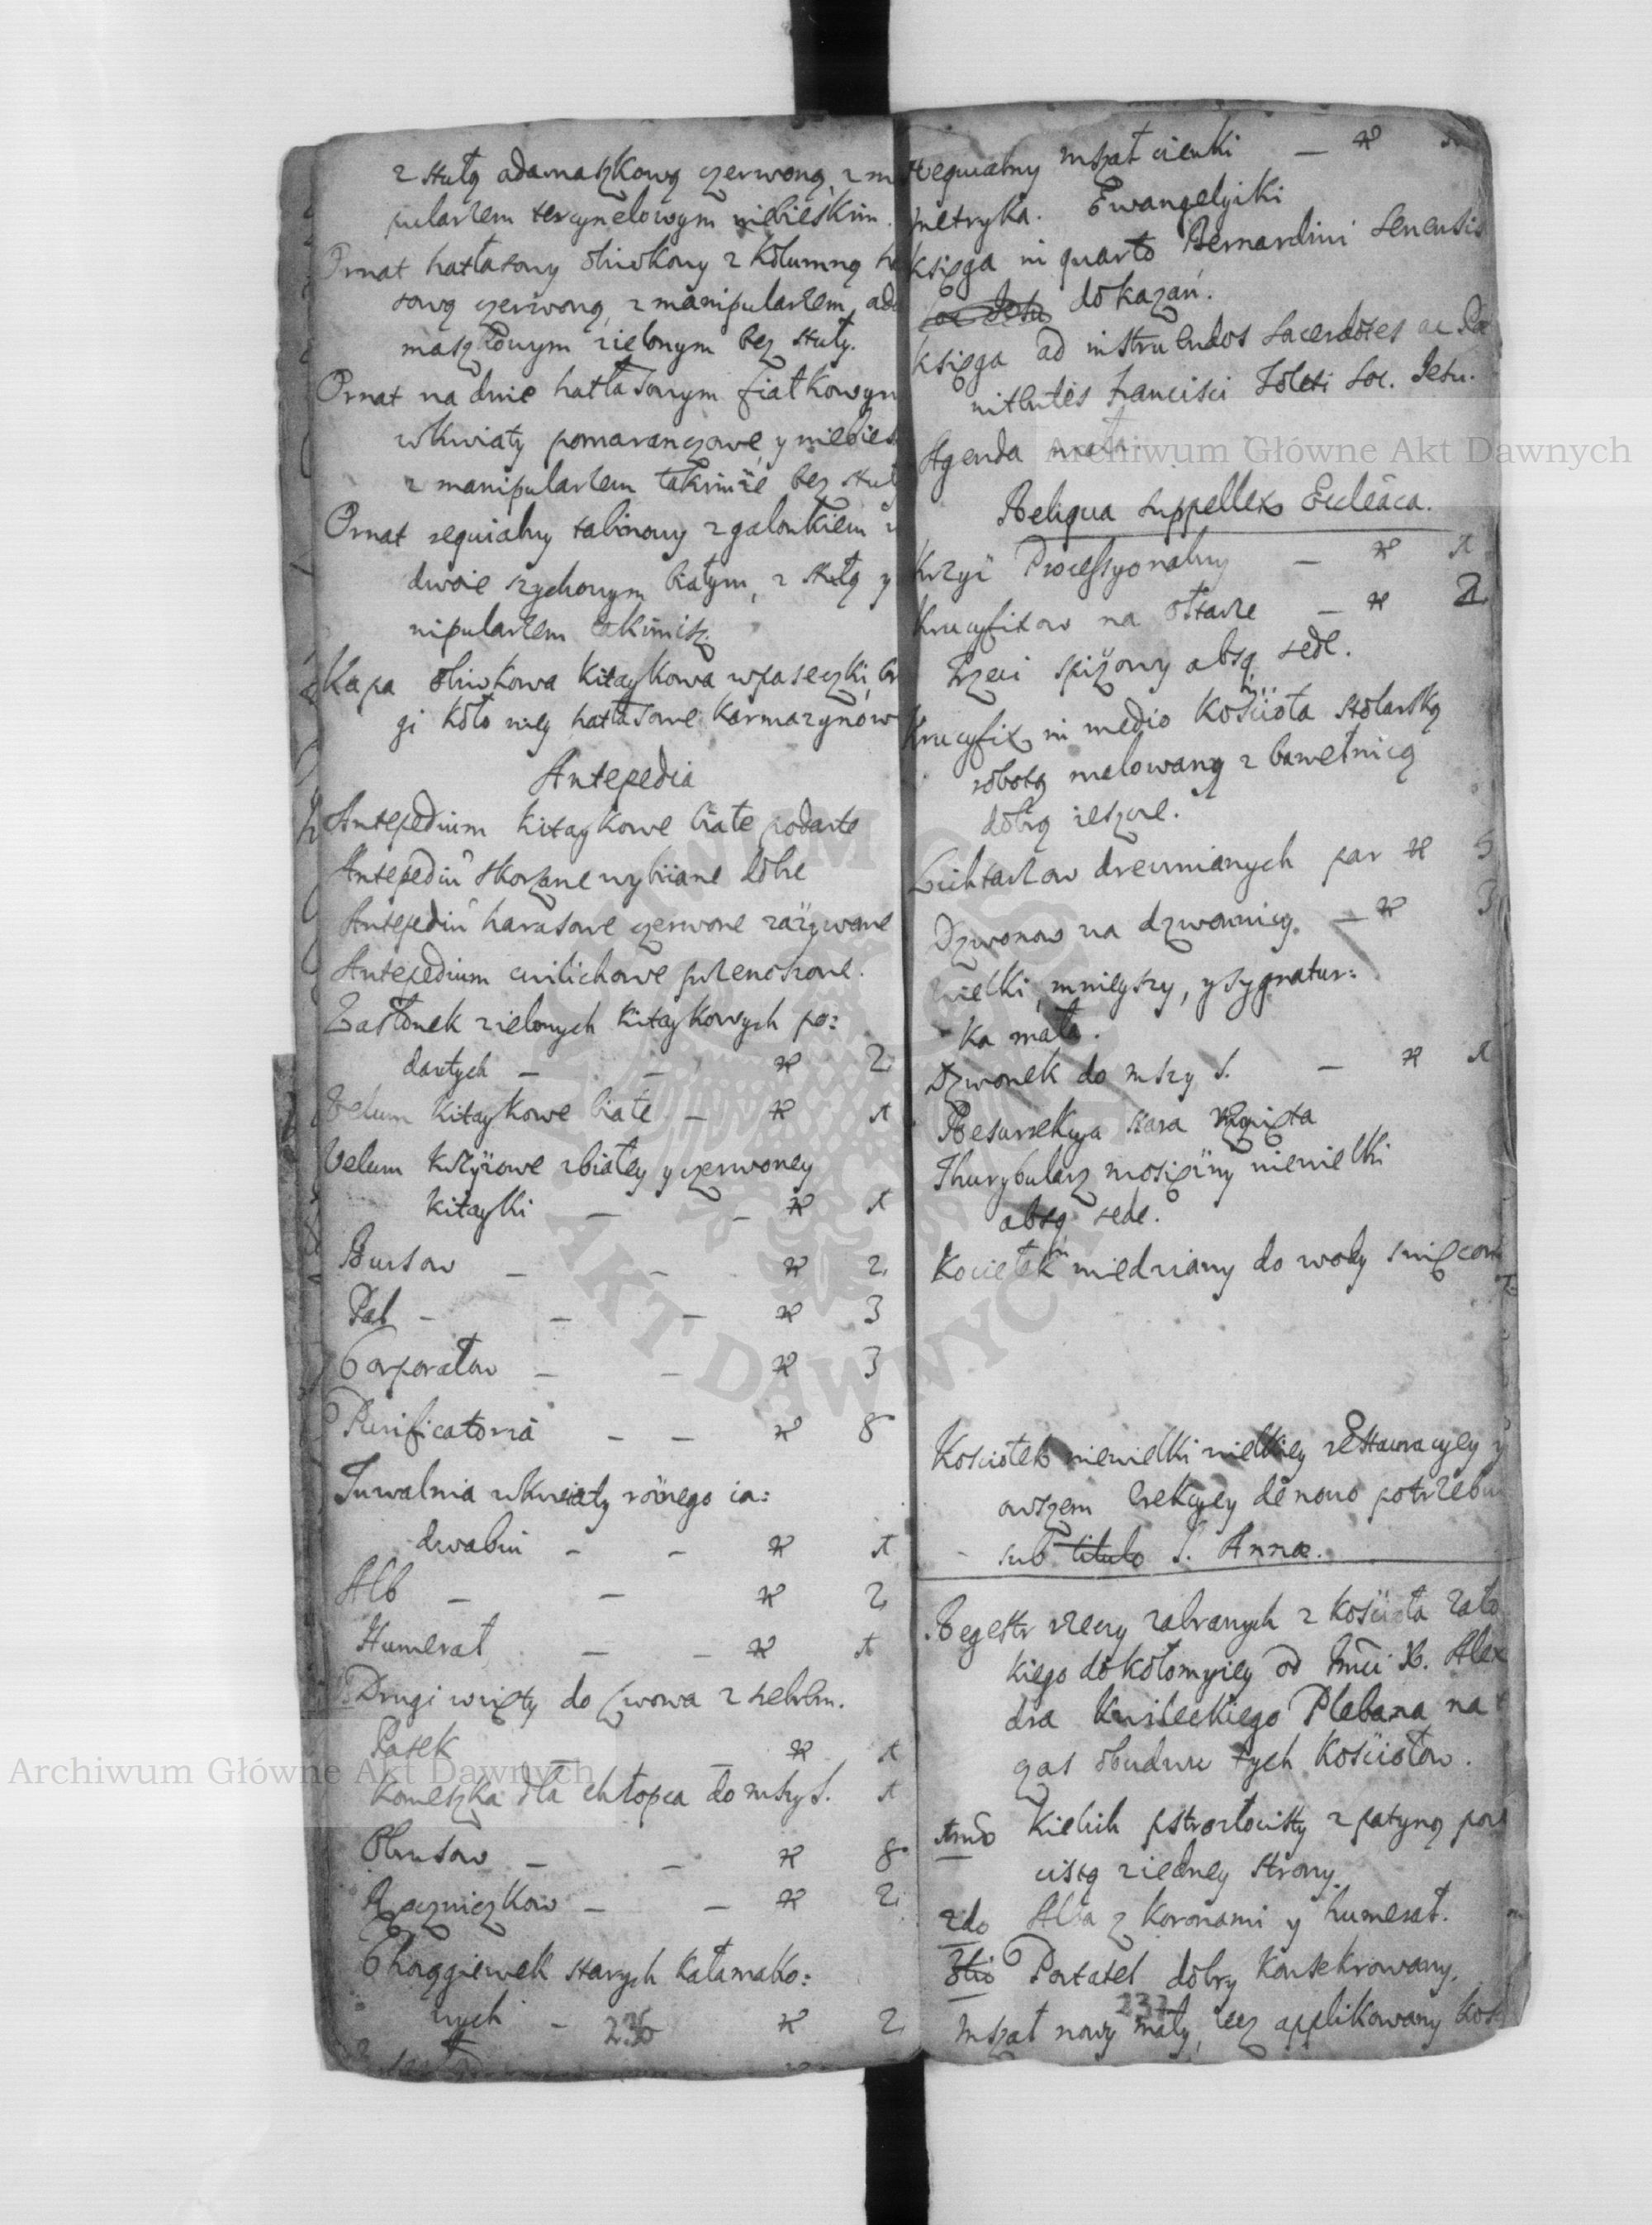 z stułą adamaszkową czerwoną, z m
pularzem tercynelowym niebieskim.
Ornat hatłasowy oliwkowy z kolumną ha
sową czerwoną, z manipularzem ada
maszkowym zielonym bez stuły.
Ornat na dnie hatłasowym fiałkowym
w kwiaty pomaranczowe y niebies
z manipularzem takimże bez stuły
Ornat requialny tabinowy z galonkiem
dwoie szychowym białym, z stułą y
nipularzem takimisz.
Kapa oliwkowa kitaykowa w paseczki, br
gi koło niey hatłasowe karmazynow
Antepedia
Antepedium kitaykowe białe podarte
Antepediũ skorzane wybiiane dobre
Antepediũ harasowe czerwone zażywane
Antepedium cwilichowe przenoszone.
Zasłonek zielonych kitaykowych po:
dartych — — № 2
Velum kitaykowe białe — № 1
Velum krzyżowe z białey y czerwoney
kitayki — — № 1
Bursow — — № 2
Pal — — — № 3
Corporałow — — № 3
Purificatoria — — № 8
Tuwalnia w kwiaty rożnego ia:
dwabiu — — № 1
Alb — — № 2
Humerał — — № 1
Drugi wzięty do Lwowa z srebrem.
Pasek — № 1
Komeszka dla chłopca do mszy S. 1
Obrusow — — № 8
Ręczniczkow — — № 2
Chorągiewek starych kałamako:
wych — № 2
236
Requialny mszał cienki — № 1
Metryka. Ewangelyiki
Księga in quarto Bernardini Senensis
Soc Jesu do kazań.
Księga ad instruendos Sacerdotes ac Pæ
nitentes Francisci Toleti Soc. Jesu.
Agenda mała.
Reliqua suppellex Eccleãca.
Krzyż Processyonalny — № 1
Krucyfixow na ołtarze — № 2
Trzeci spiżowy absq sede.
Krucyfix in medio Kościoła stolarską
robotą malowany z bawełnicą
dobrą ieszcze.
Lichtarzow drewnianych par № 5
Dzwonow na dzwonnicy — № 3
wielki, mnieyszy, y sygnatur:
ka mała.
Dzwonek do mszy S. — № 1
Resurrekcya stara rznięta
Thurybularz mosiężny niewielki
absq sede.
Kociełek miedziany do wody swięcon
Kosciołek niewielki wielkiey restauracyey y
owszem erekcyey de novo potrzebu
sub titulo S. Annæ.
Regestr rzeczy zabranych z Kościoła Zało
kiego do Kołomyiey od Jmci X. Alex
dra Kurzeckiego Plebana na
czas obudwu tych Kościołow.
1mo Kielich pstrozłocisty z patyną poz
cistą z iedney strony.
2do Alba z koronami y humerał.
3tio Portatel dobry konsekrowany.
Mszał nowy mały, lecz applikowany Kos
237
Archiwum Główne Akt Dawnych
Archiwum Główne Akt Dawnych